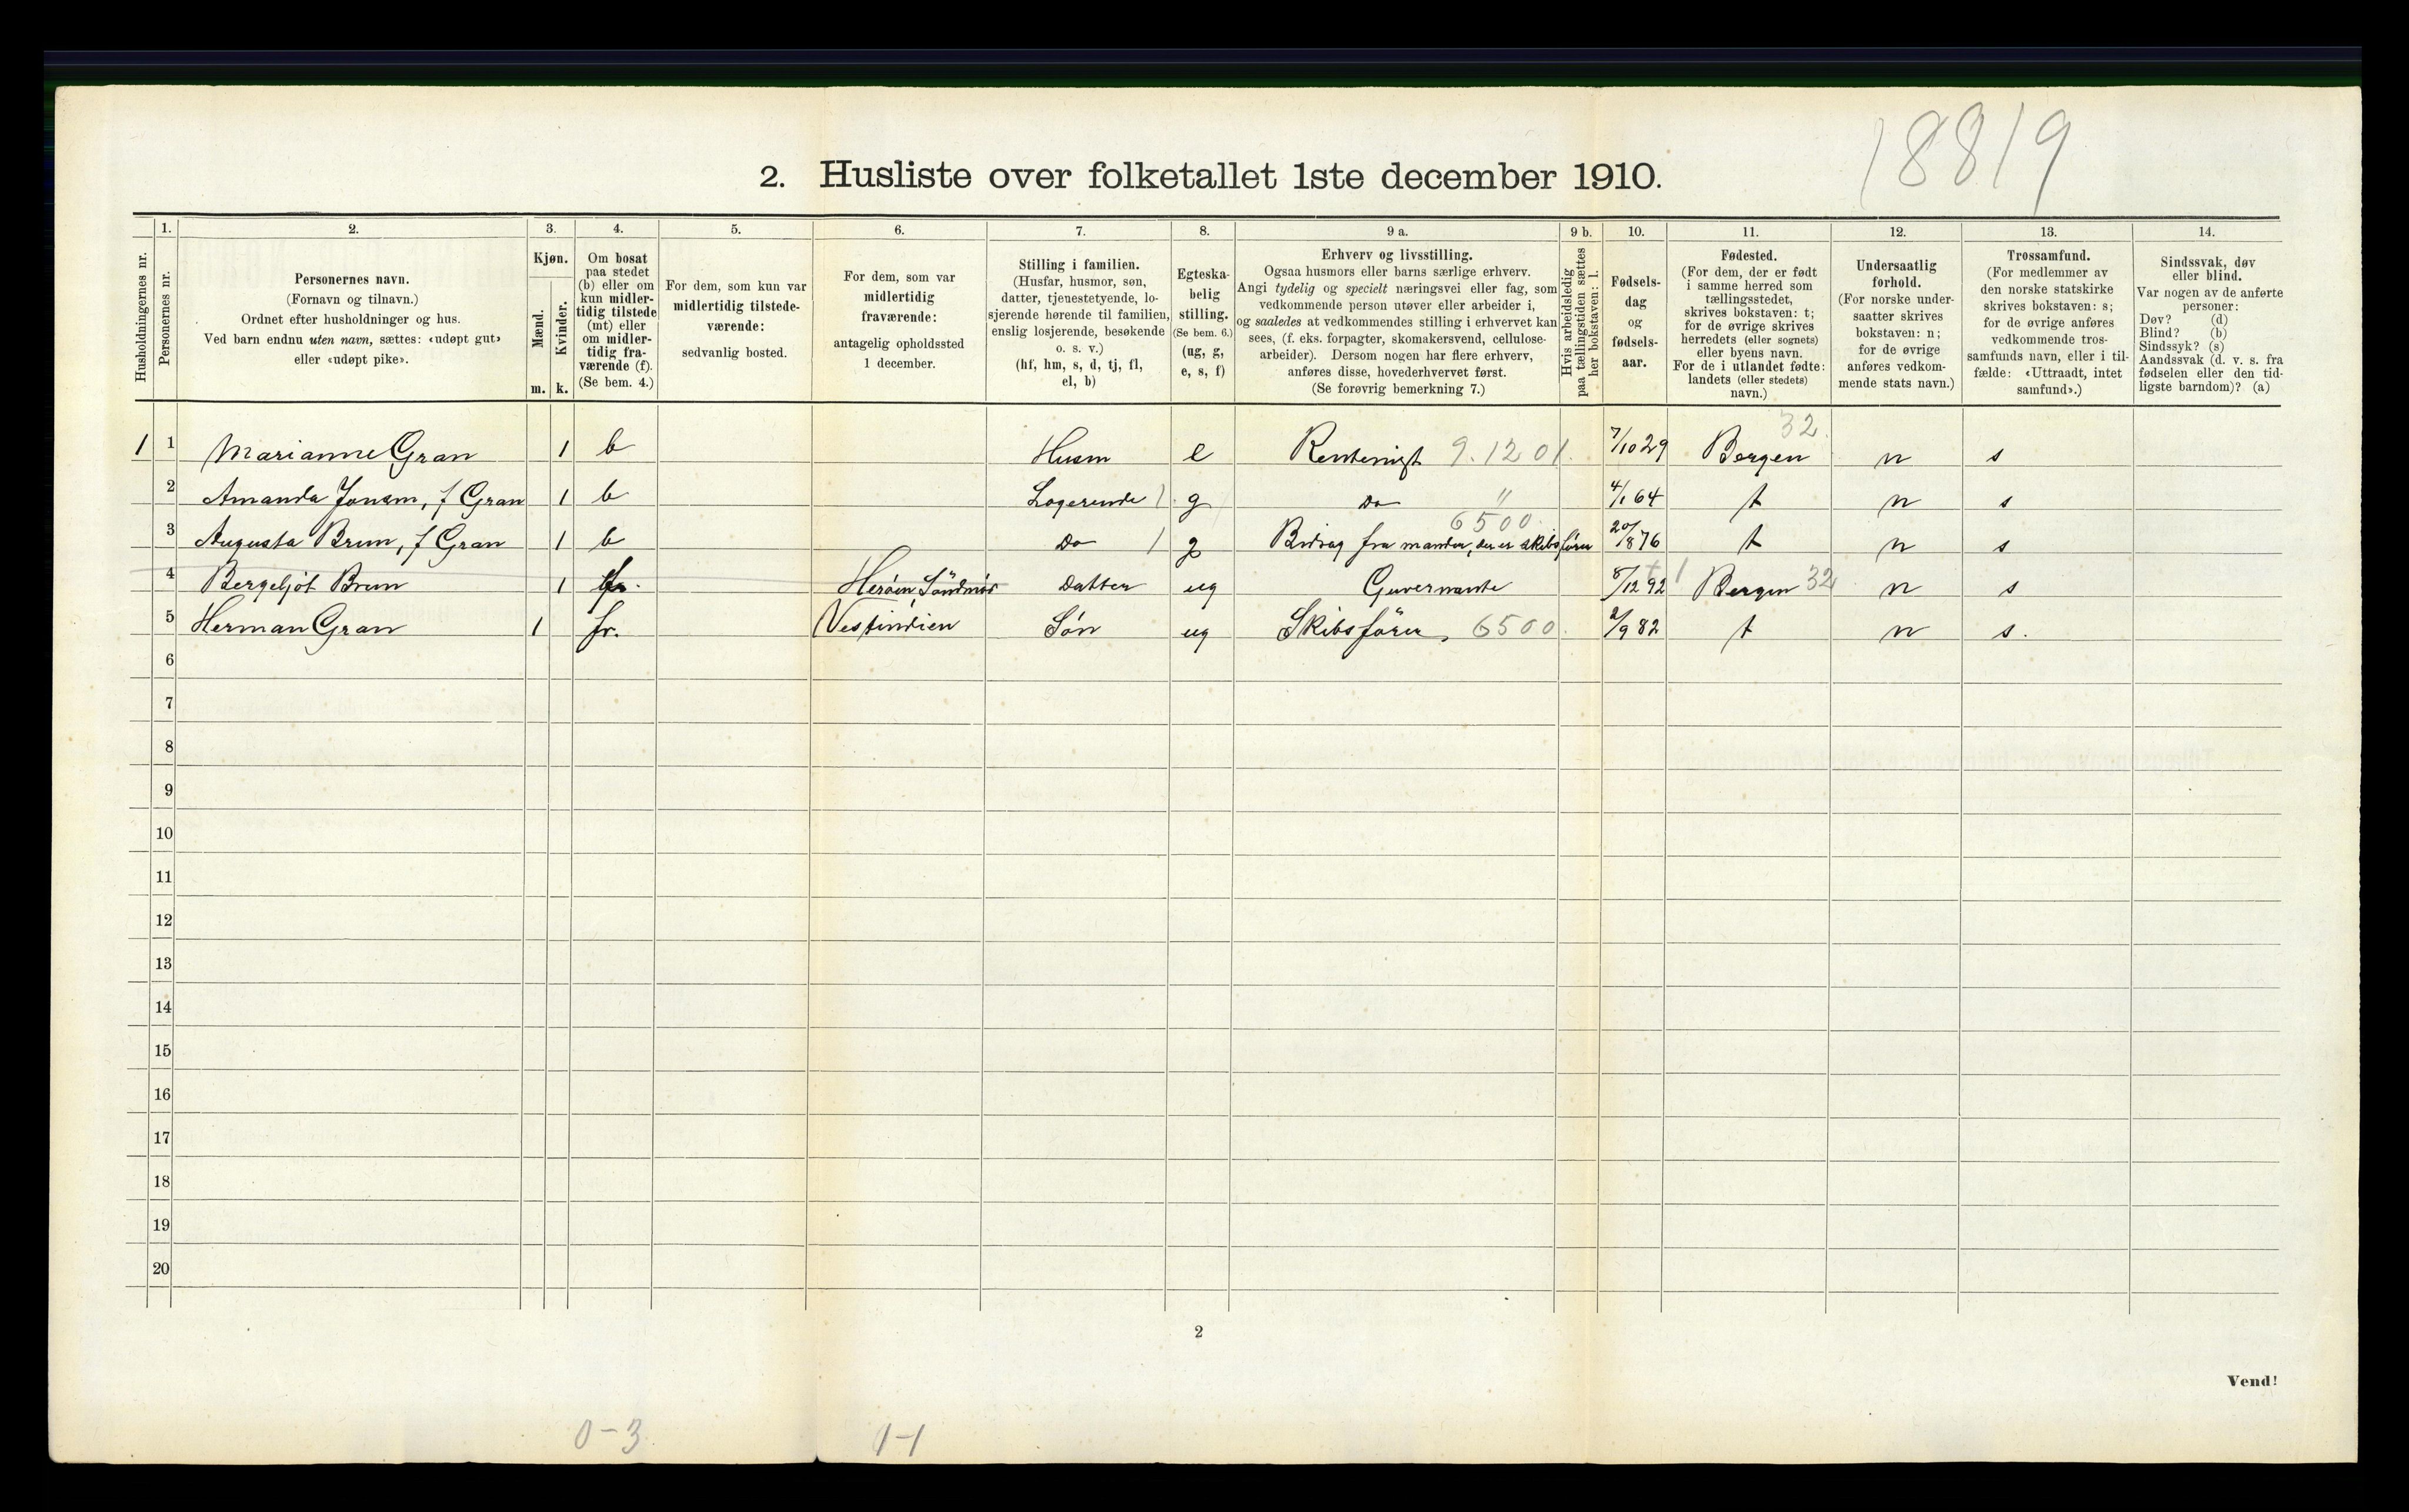 18819
2. Husliste over folketallet 1ste december 1910.
Husholdningernes nr.
1.
Personernes nr.
2.
Personernes navn.
(Fornavn og tilnavn.)
Ordnet efter husholdninger og hus.
Ved barn endnu uten navn, sættes: «udøpt gut»
eller «udøpt pike».
3.
Kjøn.
Mænd.
m.
Kvinder.
k.
4.
Om bosat
paa stedet
(b) eller om
kun midler-
tidig tilstede
(mt) eller
om midler-
tidig fra-
værende (f).
(Se bem. 4.)
5.
For dem, som kun var
midlertidig tilstede-
værende:
sedvanlig bosted.
6.
For dem, som var
midlertidig
fraværende:
antagelig opholdssted
1 december.
7.
Stilling i familien.
(Husfar, husmor, søn,
datter, tjenestetyende, lo-
sjerende hørende til familien,
enslig losjerende, besøkende
o. s. v.)
(hf, hm, s, d, tj, fl,
el, b)
8.
Egteska-
belig
stilling.
(Se bem. 6.)
(ug, g,
e, s, f)
9 a.
Erhverv og livsstilling.
Ogsaa husmors eller barns særlige erhverv.
Angi tydelig og specielt næringsvei eller fag, som
vedkommende person utøver eller arbeider i,
og saaledes at vedkommendes stilling i erhvervet kan
sees, (f. eks. forpagter, skomakersvend, cellulose-
arbeider). Dersom nogen har flere erhverv,
anføres disse, hovederhvervet først.
(Se forøvrig bemerkning 7.)
9 b.
Hvis arbeidsledig
paa tællingstiden sættes
her bokstaven: l.
10.
Fødsels-
dag
og
fødsels-
aar.
11.
Fødested.
(For dem, der er født
i samme herred som
tællingsstedet,
skrives bokstaven: t;
for de øvrige skrives
herredets (eller sognets)
eller byens navn.
For de i utlandet fødte:
landets (eller stedets)
navn.)
12.
Undersaatlig
forhold.
(For norske under-
saatter skrives
bokstaven: n;
for de øvrige
anføres vedkom-
mende stats navn.)
13.
Trossamfund.
(For medlemmer av
den norske statskirke
skrives bokstaven: s;
for de øvrige anføres
vedkommende tros-
samfunds navn, eller i til-
fælde: «Uttraadt, intet
samfund».)
14.
Sindssvak, døv
eller blind.
Var nogen av de anførte
personer:
Døv? (d)
Blind? (b)
Sindssyk? (s)
Aandssvak (d. v. s. fra
fødselen eller den tid-
ligste barndom)? (a)
1 1 Marianne Gran 1 b Husm e 9.12 01. 7/10 29 Bergen 32 n s
2 Amanda f Gran 1 b Logerende 1 g Do " 4/1 64 t n s
3 Augusta Brun, f Gran 1 b Do 1 g Bidrag fra manden, der er skibsfører 6500 20/8 76 t n s
4 Bergeljot Brun 1 Herøen Söndmör Datter ug Guvernante 8/12 92 Bergen 32 n s
5 Herman Gran 1 fr. Vestindien Sön ug Skibsförer, 6500 2/9 82 t n s.
6
7
8
9
10
11
12
13
14
15
16
17
18
19
20
2
Vend!
0-3 1-1